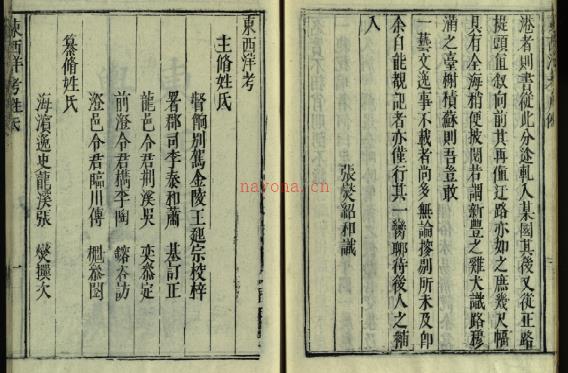 港者則書從此分途軋入某國其後又從正路
提頭直敘向前其再值迂路亦如之庶幾尺幅
具有全海稍便披閱昔謂新豐之雞犬識路穆
滿之臺榭積蘇則吾豈敢
一藝文逸事不載者尚多無論搜剔所未及即
余自能覩記者亦僅行其一臠聊待後人之補
入
張燮紹和識
東西洋考
主脩姓氏
督餉別駕金陵王起宗校梓
署郡司李泰和蕭 基訂正
龍邑令君荊溪吳 奕叅定
前澄令君檇李陶 鎔咨訪
澄邑令君臨川傅 櫆叅閱
纂脩姓氏
海濱逸史龍溪張 燮撰次
東西洋考姓氏
一
navona.cn